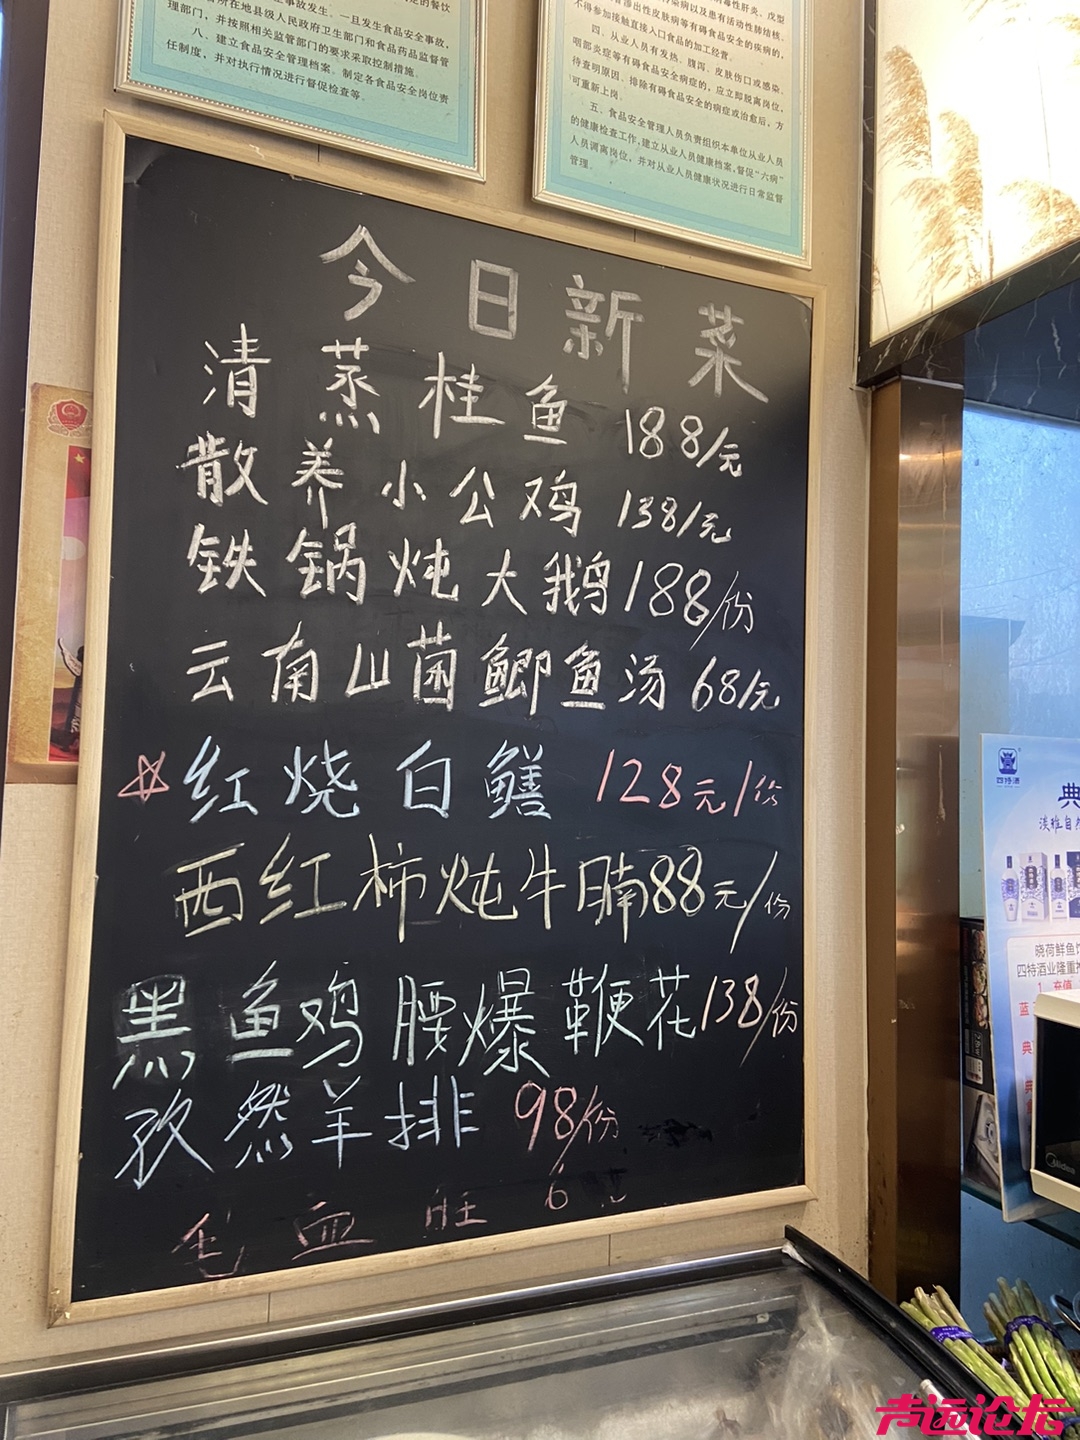 事故发生。一旦发生食品安全事故,
所在地县级人民政府卫生部门和食品药品监督管
理部门,并按照相关监管部门的要求采取控制措施。
八、建立食品安全管理档案。制定各食品安全岗位责
任制度,并对执行情况进行督促检查等。
渗出性皮肤病等有碍食品安全的疾病的,
不得参加接触直接入口食品的加工经营。
四、从业人员有发热、腹泻、皮肤伤口或感染、
咽部炎症等有碍食品安全病症的,应立即脱离岗位,
待查明原因、排除有碍食品安全的病症或治愈后,方
可重新上岗。
五、食品安全管理人员负责组织本单位从业人员
的健康检查工作,建立从业人员健康档案,督促“六病”
人员调离岗位,并对从业人员健康状况进行日常监督
管理。
今日新菜
清蒸桂鱼 188/元
散养小公鸡 138/元
铁锅炖大鹅 188/份
云南山菌鲫鱼汤 68/元
红烧白鳝 128元/份
西红柿炖牛腩 88元/份
黑鱼鸡腰爆鞭花 138/份
孜然羊排 98/份
毛血旺 6
四特酒
典
淡雅自
晓荷鲜鱼
四特酒业隆重
1
充值
蓝
典
Midea
声远论坛